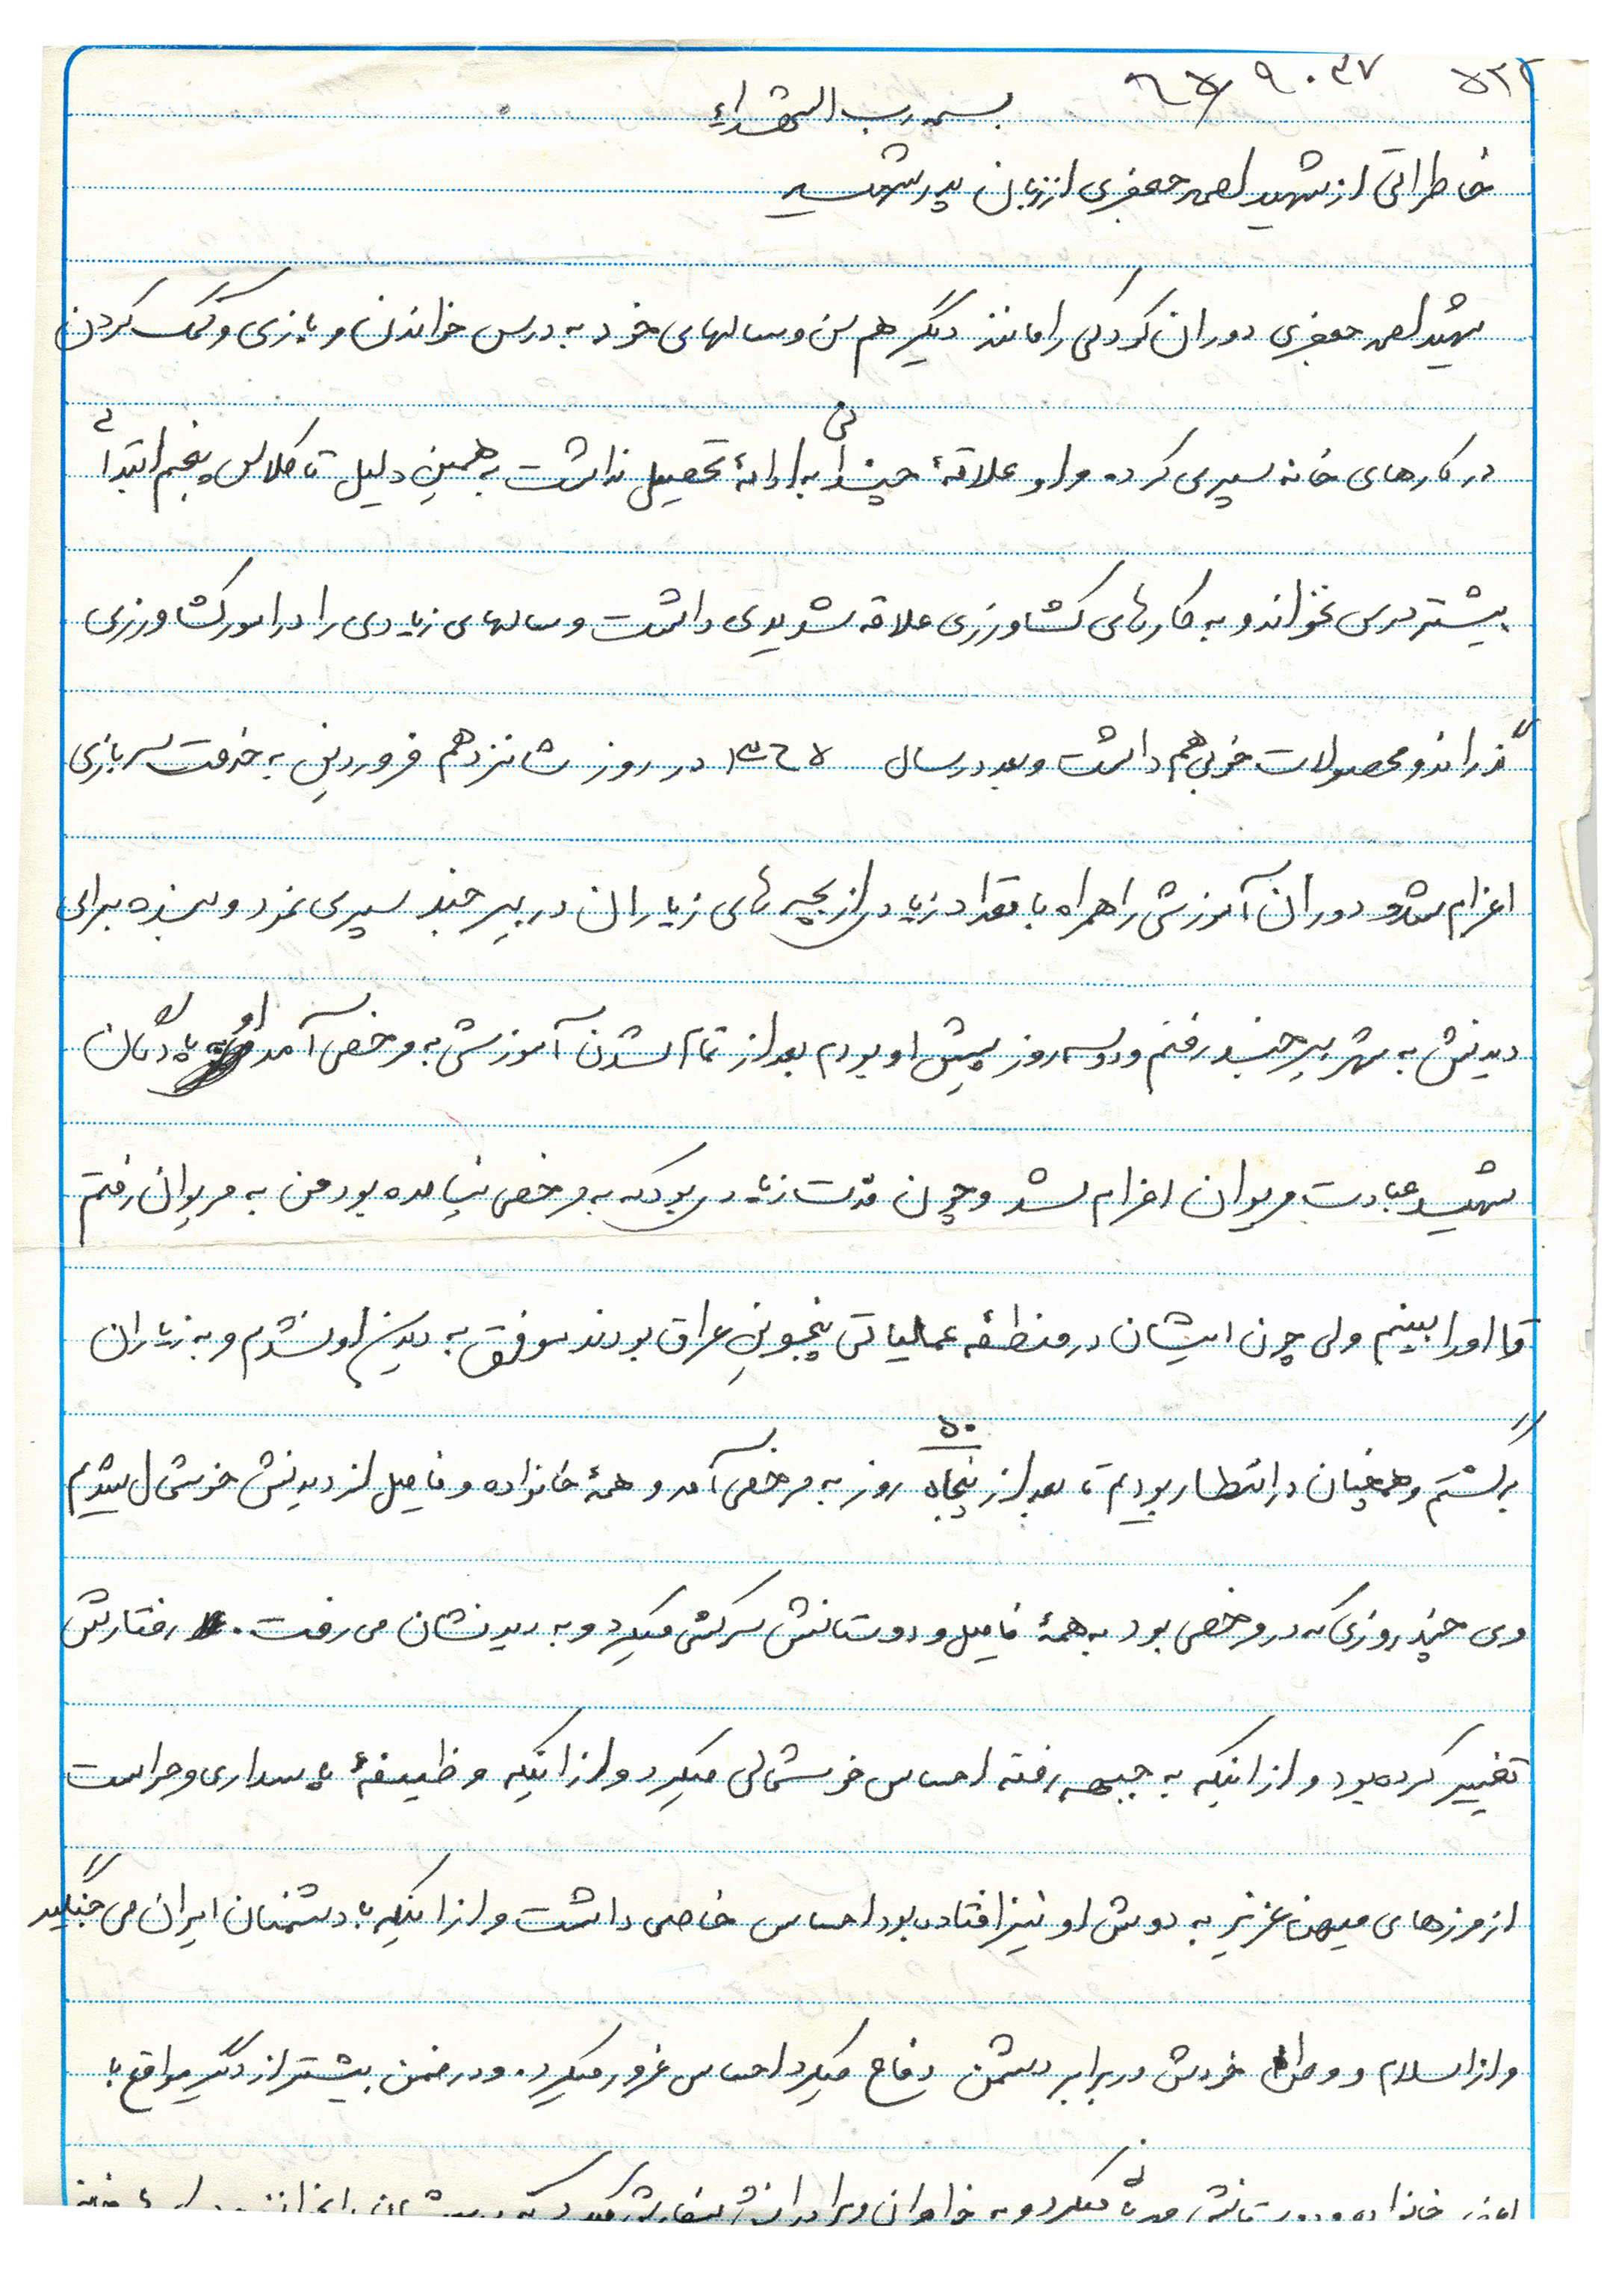 بسمه رب الشهداء
خاطراتی از شهید احمد جعفری از زبان پدر شهید
شهید احمد جعفری دوران کودکی را مانند دیگر هم سن و سالهای خود به درس خواندن و بازی و کمک کردن
در کارهای خانه سپری کرد. و او علاقهٔ چندانی به ادامهٔ تحصیل نداشت به همین دلیل تا کلاس پنجم ابتدائی
بیشتر درس نخواند و به کارهای کشاورزی علاقه شدیدی داشت و سالهای زیادی را در امور کشاورزی
گذراند و محصولات خوبی هم داشت و بعد در سال ۱۳۶۵ در روز شانزدهم فروردین به خدمت سربازی
اعزام شد و دوران آموزش را همراه با تعداد زیادی از بچه های زیاران در بیرجند سپری نمود و بنده برای
دیدنش به شهر بیرجند رفتم و دو سه روز پیش او بودم بعد از تمام شدن آموزشی به مرخصی آمد و او به پادگان
شهید عبادت مریوان اعزام شد و چون مدت زیادی بود که به مرخصی نیامده بود من به مریوان رفتم
تا او را ببینم ولی چون ایشان در منطقهٔ عملیاتی پنجوین عراق بودند موفق به دیدن او نشدم و به زیاران
برگشتم و همچنان در انتظار بودیم، بعد از پنجاه ۵۰ روز به مرخصی آمد و همهٔ خانواده و فامیل از دیدنش خوشحال شدیم
وی چند روزی که در مرخصی بود به همهٔ فامیل و دوستانش سرکشی میکرد و به دیدنشان می رفت. رفتارش
تغییر کرده بود و از اینکه به جبهه رفته احساس خوشحالی میکرد و از اینکه وظیفهٔ پاسداری و حراست
از مرزهای میهن عزیز به دوش او نیز افتاده بود احساس خاصی داشت و از اینکه با دشمنان ایران می جنگید
و از اسلام و وطن خودش در برابر دشمن دفاع میکرد احساس غرور میکرد. و در ضمن بیشتر از دیگر مواقع با